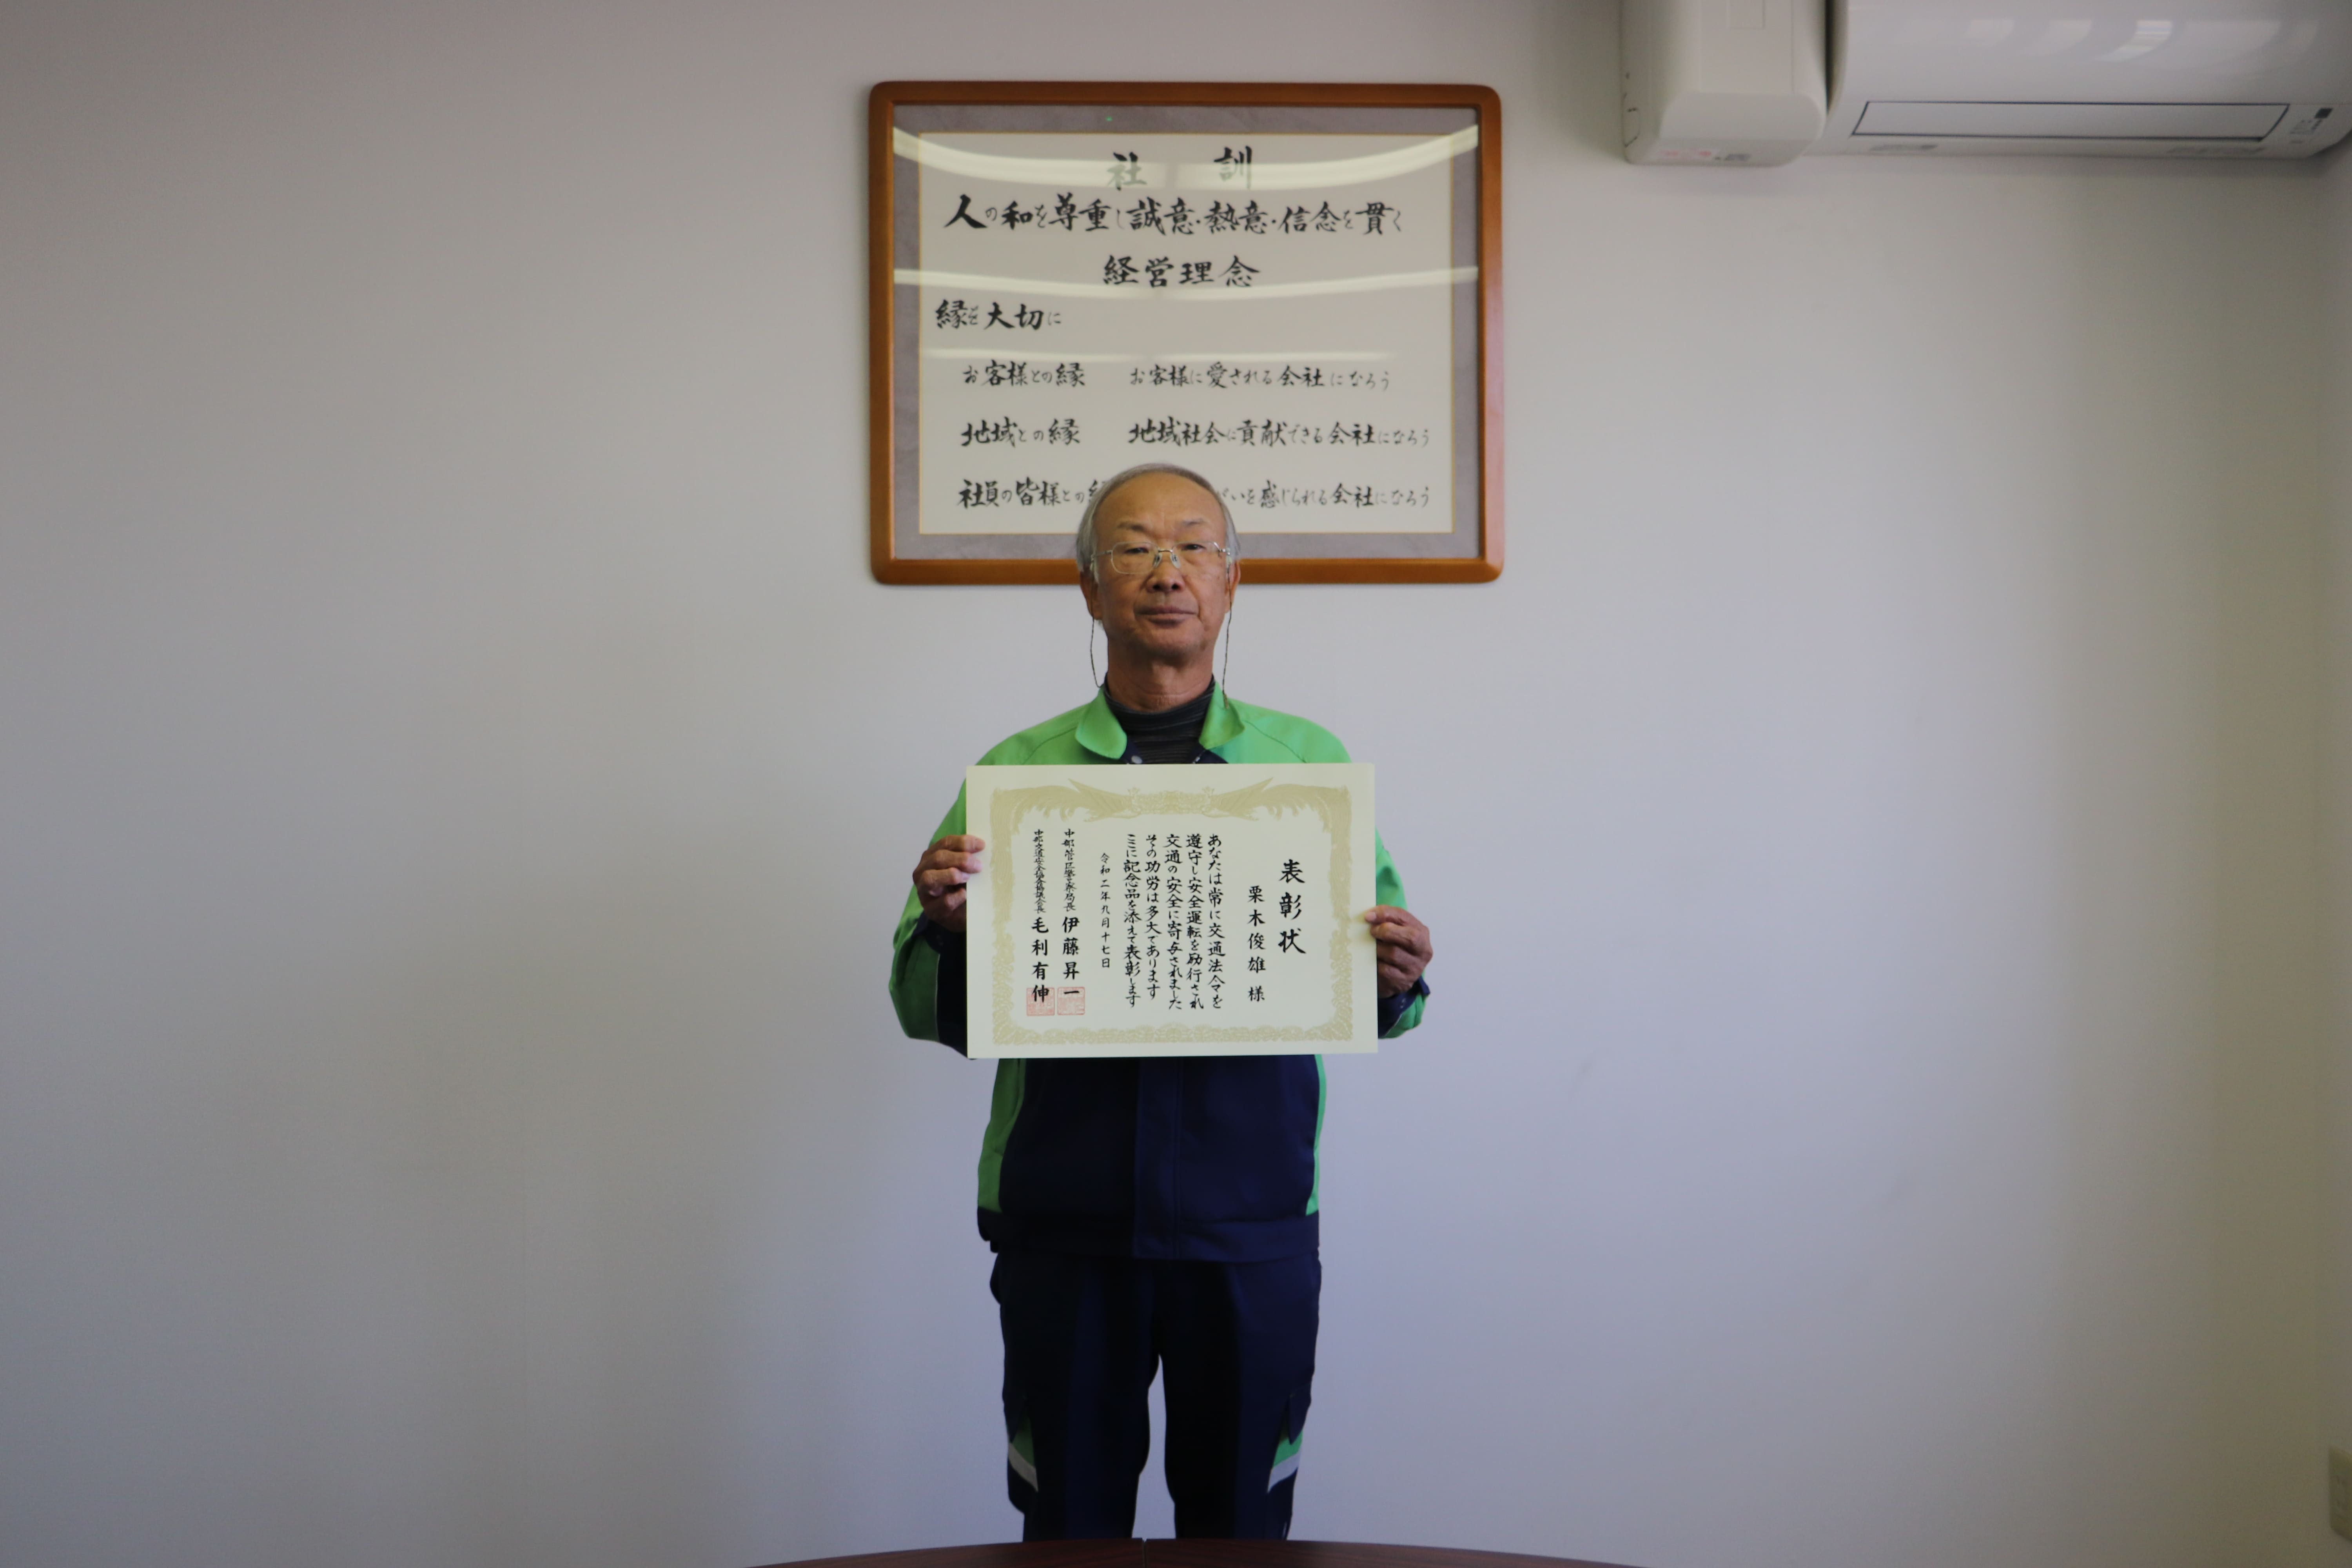 社訓
人の和を尊重し誠意・熱意・信念を貫く
経営理念
縁を大切に
お客様との縁 お客様に愛される会社になろう
地域との縁 地域社会に貢献できる会社になろう
社員の皆様との がいを感じられる会社になろう
表彰状
栗木俊雄様
あなたは常に交通法令を
遵守し安全運転を励行され
交通の安全に寄与されました
その功労は多大であります
ここに記念品を添えて表彰します
令和二年九月十七日
中部管区警察局長 伊藤昇一
中部交通安全協会協議会長 毛利有伸